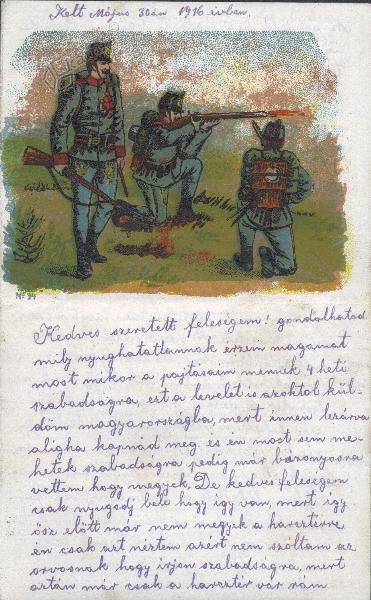 Kelt Május 30án 1916 évben.
No 94
Kedves szeretett feleségem! gondolhatod
mily nyughatatlannak érzem magamat
most mikor a pajtásaim mennik 4 heti
szabadságra, ezt a levelet is azoktol kül-
döm magyarországba, mert innen lezárva
aligha kapnád meg és én most sem me-
hetek szabadságra pedig már bizonyosra
vettem hogy megyek. De kedves feleségem
csak nyugodj bele hogy így van, mert így
ősz előtt már nem megyek a harcztérre
én csak azt néztem azért nem szóltam az
orvosnak hogy irjon szabadságra, mert
aztán már csak a harcztér vár rám